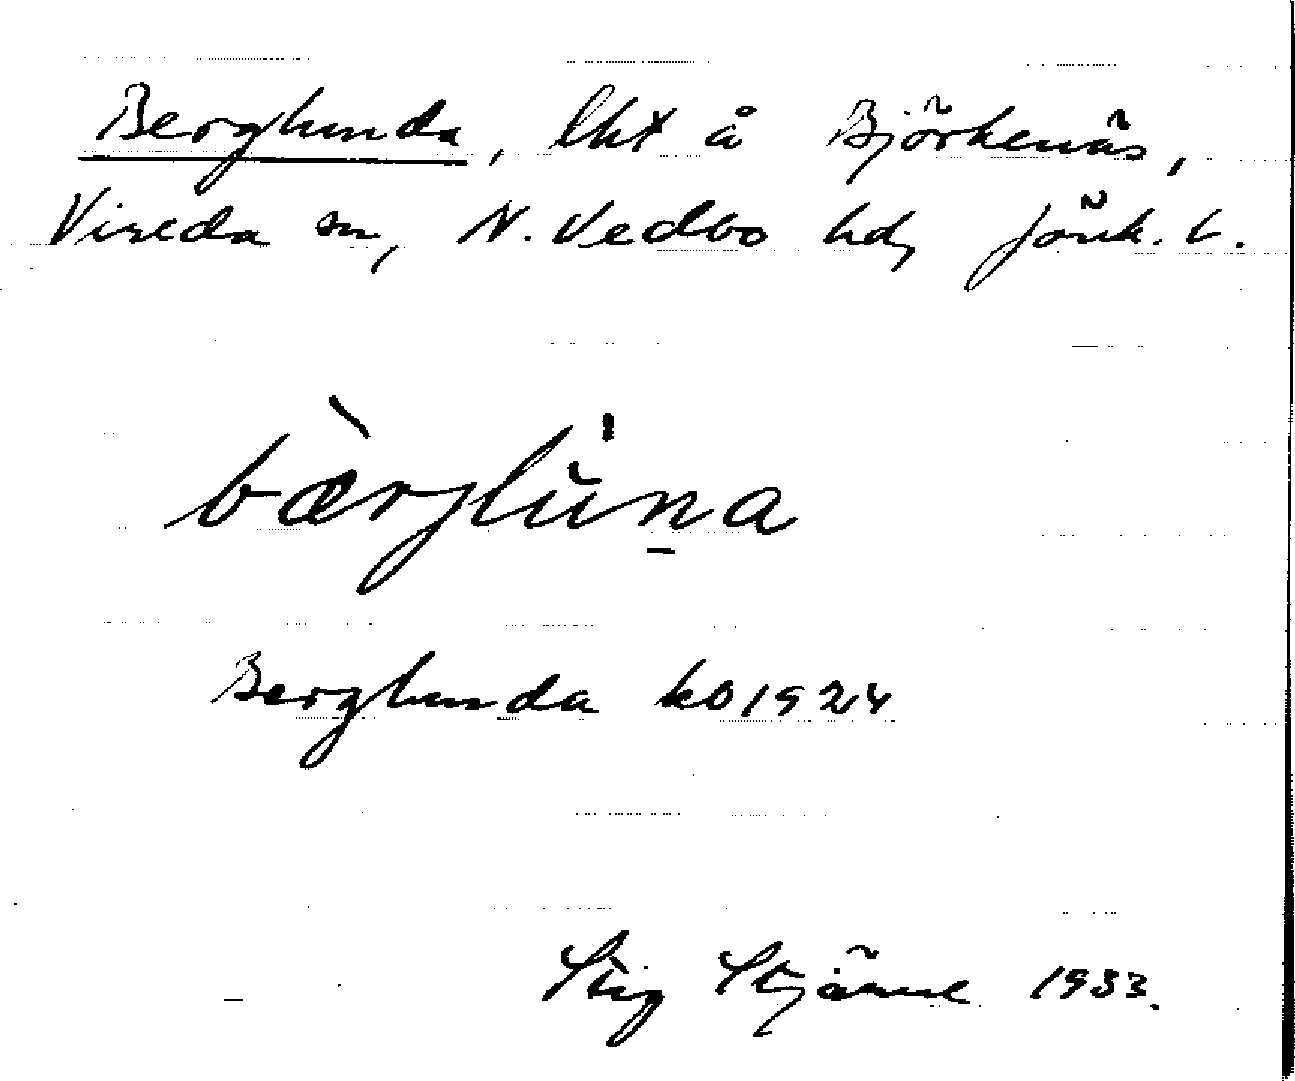 Berglunda, lht å Björkenäs,
Vireda sn, N. Vedbo hd, Jönk. l.
bærglùna
Berglunda kb 1924
Stig Stjärne 1933.